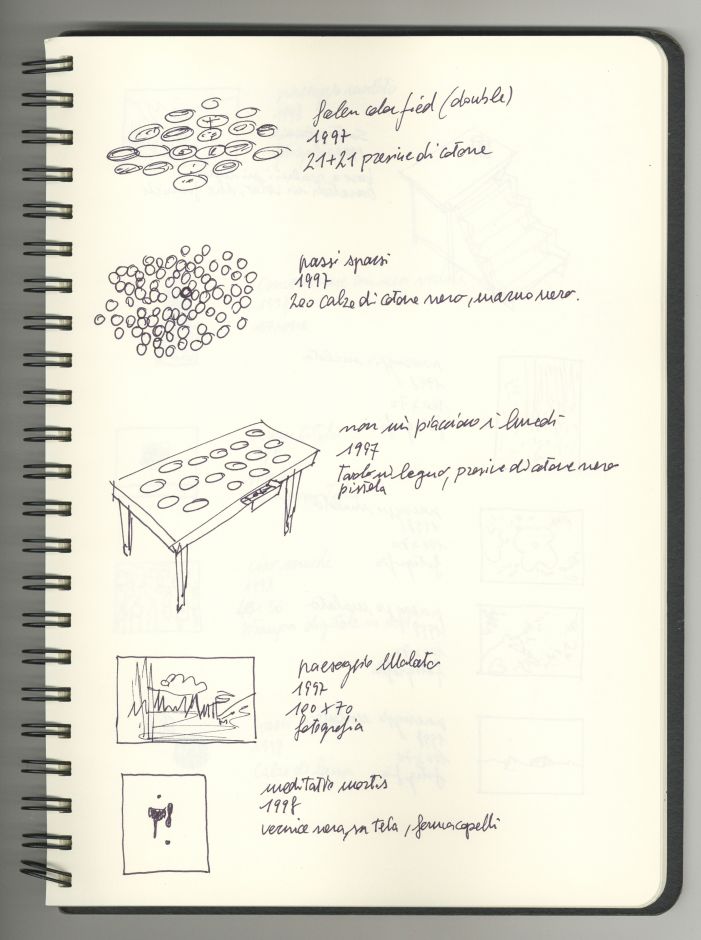 falen color field (double)
1997
21+21 presine di cotone
passi sparsi
1997
200 calze di cotone nero, marmo nero.
non mi piacciono i lunedì
1997
tavolo in legno, presine di cotone nero
pistola
paesaggio Malato
1997
100 x 70
fotografia
meditatio mortis
1998
vernice nera, su tela, fermacapelli